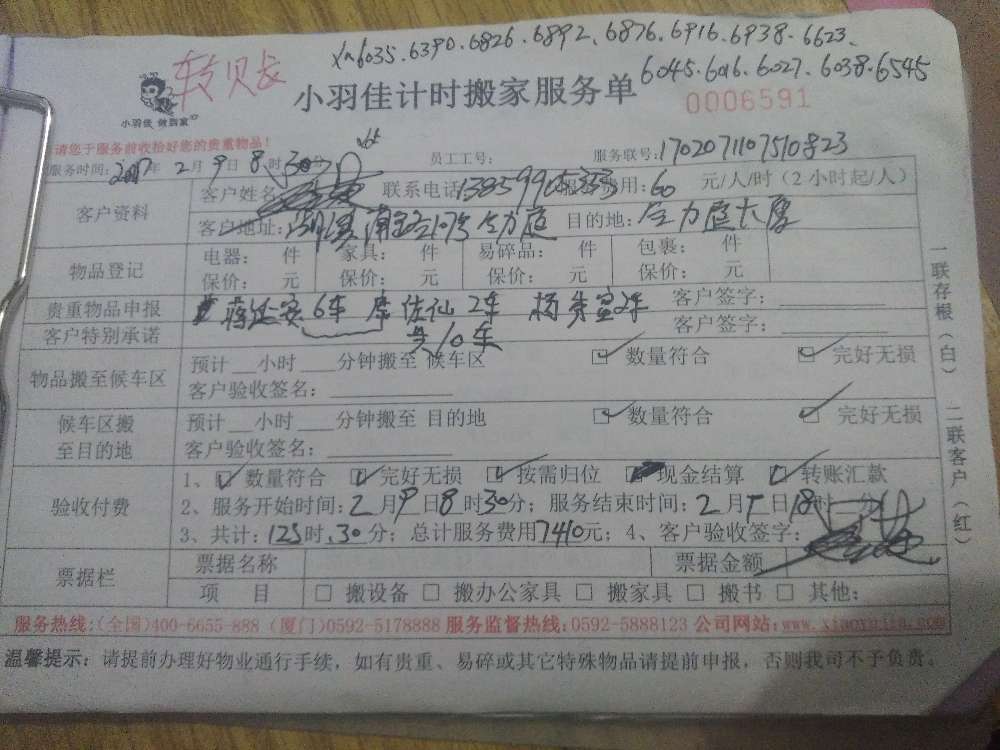 xm6035.6390.6826.6892、6876.6916.6938.6623、
6045.6016.6027.6038.6545
转
小羽佳 做到家
小羽佳计时搬家服务单
0006591
请您于服务前收拾好您的贵重物品！
服务时间：2017年 2月 9日 8时30分
员工工号：
服务联号：1702071107510823
客户资料
客户姓名
联系电话
费用：60 元/人/时（2小时起/人）
客户地址：
目的地：全力庭大厦
物品登记
电器： 件 家具： 件 易碎品： 件 包裹： 件
保价： 元 保价： 元 保价： 元 保价： 元
贵重物品申报
6车 2车 2车
客户签字：
客户特别承诺
共10车
客户签字：
物品搬至候车区
预计 小时 分钟搬至 候车区 数量符合 完好无损
客户验收签名：
候车区搬至目的地
预计 小时 分钟搬至 目的地 数量符合 完好无损
客户验收签名：
验收付费
1、 数量符合 完好无损 按需归位 现金结算 转账汇款
2、服务开始时间：2月9日8时30分；服务结束时间：2月 日18时 分
3、共计：123时.30分；总计服务费用7410元；4、客户验收签字：
票据栏
票据名称 票据金额
项 目 □ 搬设备 □ 搬办公家具 □ 搬家具 □ 搬书 □ 其他：
一联存根（白） 二联客户（红）
服务热线：(全国)400-6655-888 (厦门)0592-5178888 服务监督热线：0592-5888123 公司网站：
温馨提示：请提前办理好物业通行手续，如有贵重、易碎或其它特殊物品请提前申报，否则我司不予负责。